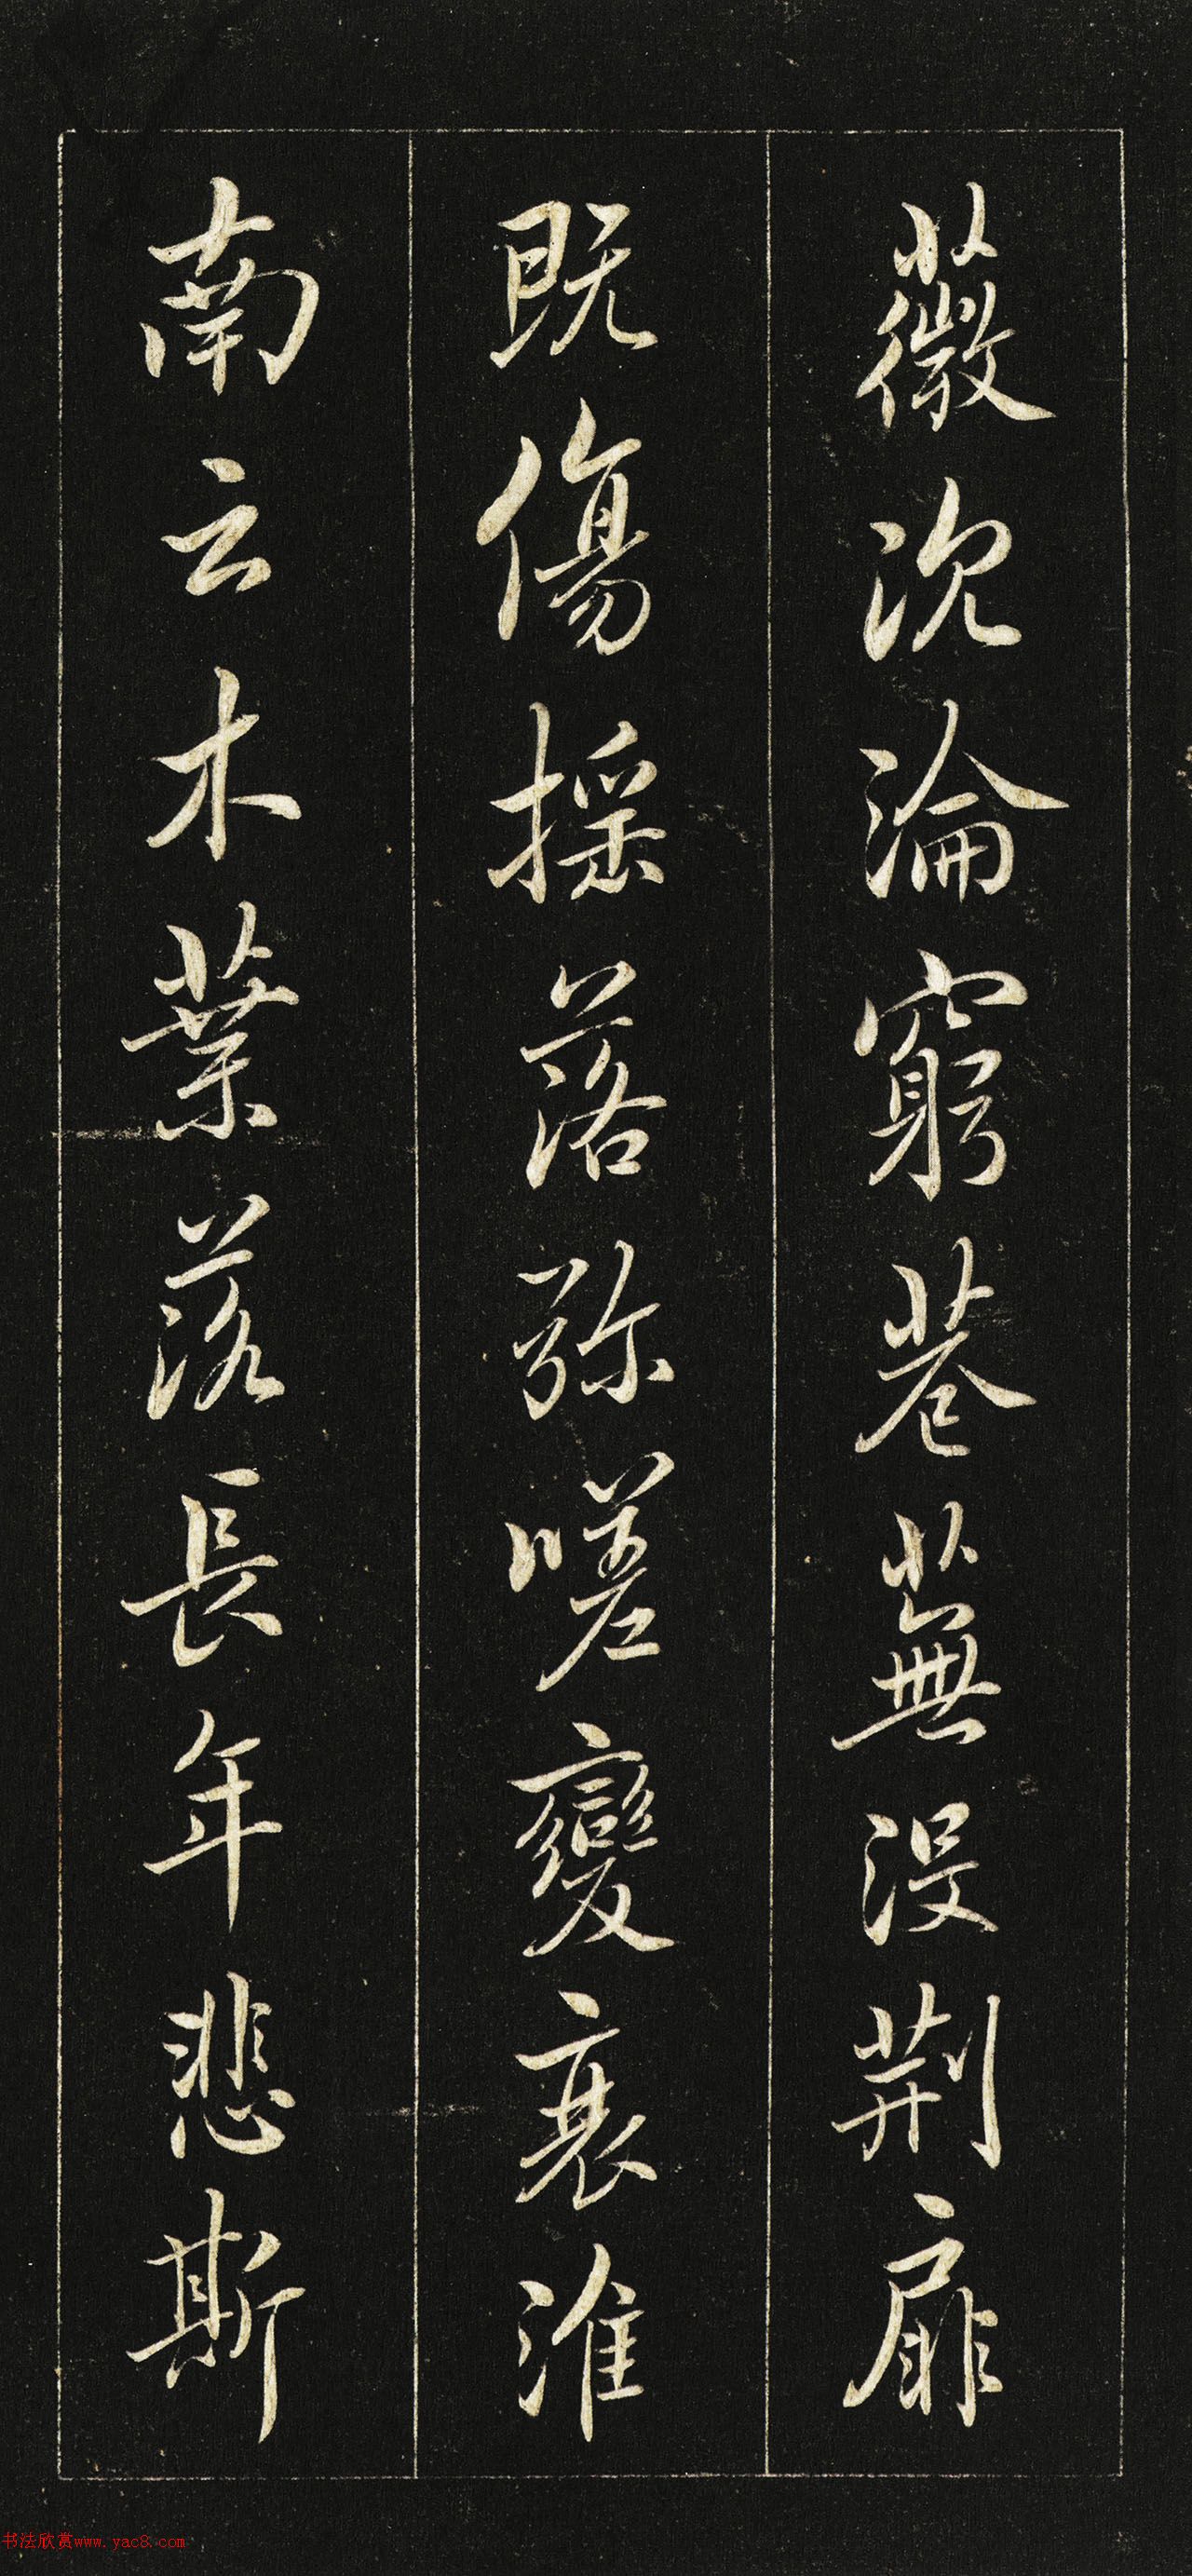 薇沈淪窮巷蕪没荆扉
既傷摇落弥嗟變衰淮
南云木葉落長年悲斯
书法欣赏www.yac8.com